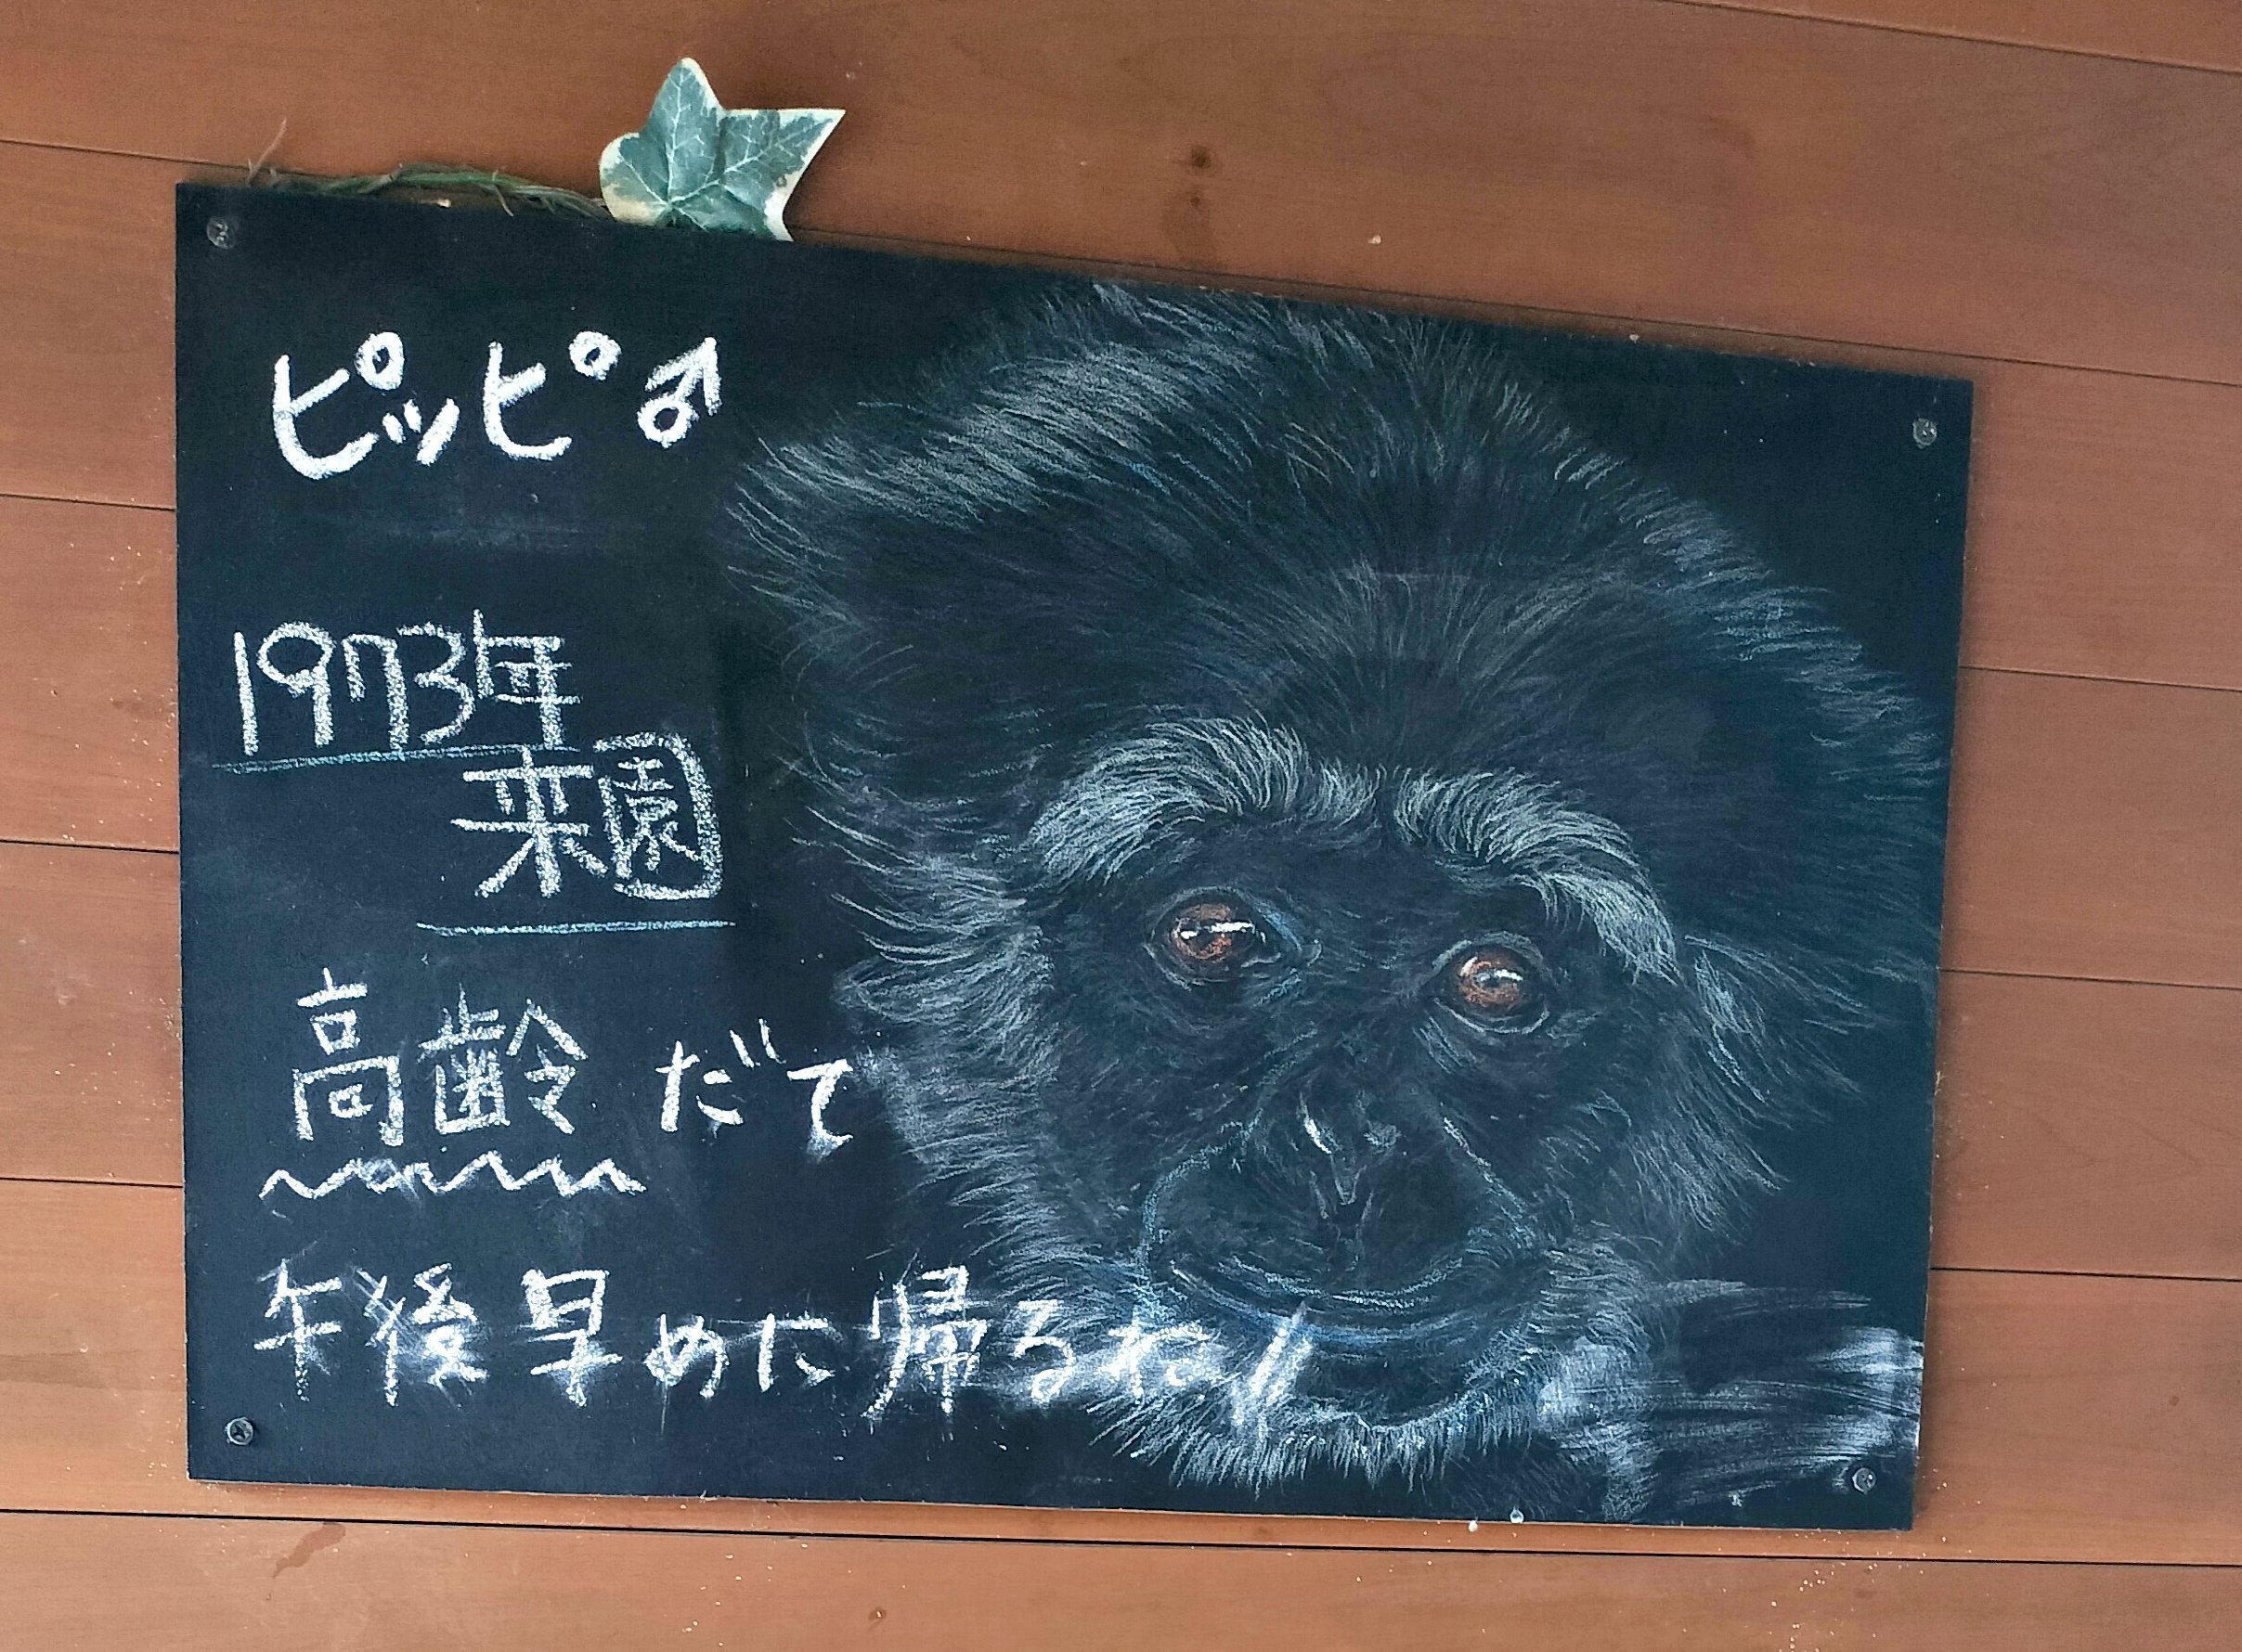 ピッピ♂
1973年
来園
高齢だて
午後早めに帰るね!!